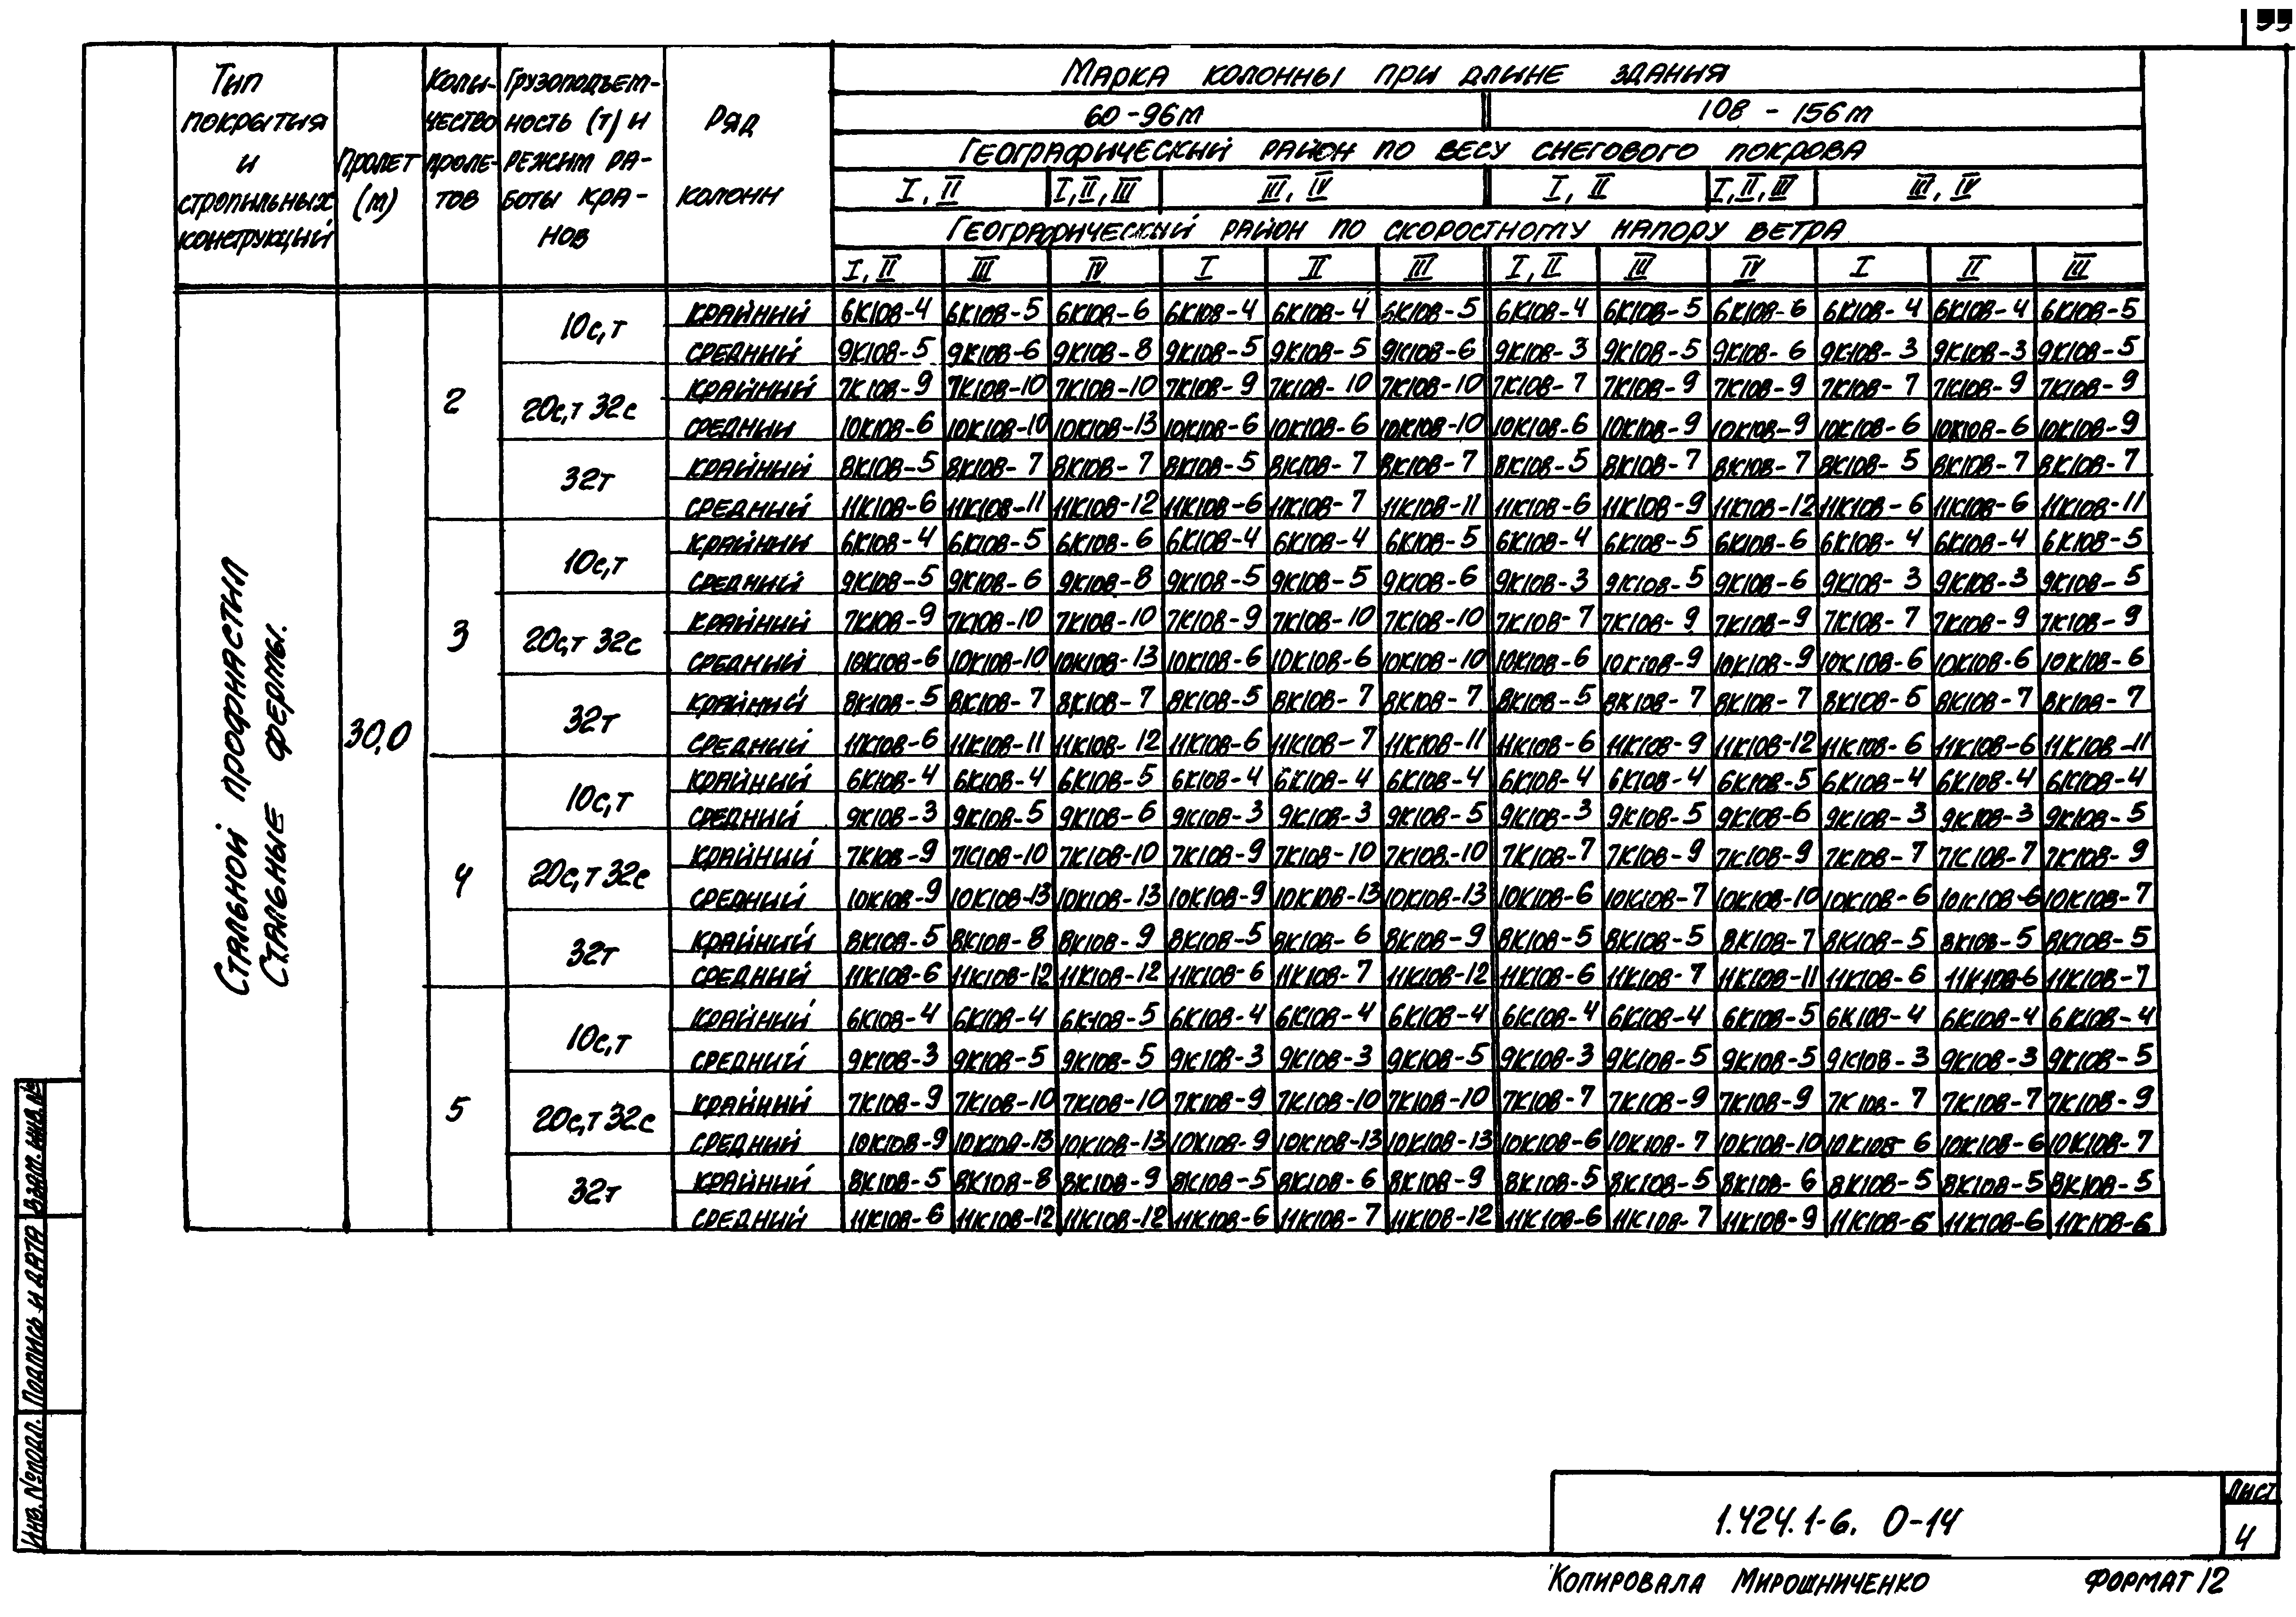 Тип покрытия и стропильных конструкций | Пролет (м) | Коли-чество проле-тов | Грузоподъем-ность (т) и режим ра-боты кра-нов | Ряд колонн | Марка колонны при длине здания
60-96м | 108 - 156м
Географический район по весу снегового покрова
I, II | I, II, III | III, IV | I, II | I, II, III | III, IV
Географический район по скоростному напору ветра
I, II | III | IV | I | II | III | I, II | III | IV | I | II | III
Стальной профнастил
Стальные фермы.
30,0
2
10с,т
крайний 6К108-4 6К108-5 6К108-6 6К108-4 6К108-4 6К108-5 6К108-4 6К108-5 6К108-6 6К108-4 6К108-4 6К108-5
средний 9К108-5 9К108-6 9К108-8 9К108-5 9К108-5 9К108-6 9К108-3 9К108-5 9К108-6 9К108-3 9К108-3 9К108-5
20с,т 32с
крайний 7К108-9 7К108-10 7К108-10 7К108-9 7К108-10 7К108-10 7К108-7 7К108-9 7К108-9 7К108-7 7К108-9 7К108-9
средний 10К108-6 10К108-10 10К108-13 10К108-6 10К108-6 10К108-10 10К108-6 10К108-9 10К108-9 10К108-6 10К108-6 10К108-9
32т
крайний 8К108-5 8К108-7 8К108-7 8К108-5 8К108-7 8К108-7 8К108-5 8К108-7 8К108-7 8К108-5 8К108-7 8К108-7
средний 11К108-6 11К108-11 11К108-12 11К108-6 11К108-7 11К108-11 11К108-6 11К108-9 11К108-12 11К108-6 11К108-6 11К108-11
3
10с,т
крайний 6К108-4 6К108-5 6К108-6 6К108-4 6К108-4 6К108-5 6К108-4 6К108-5 6К108-6 6К108-4 6К108-4 6К108-5
средний 9К108-5 9К108-6 9К108-8 9К108-5 9К108-5 9К108-6 9К108-3 9К108-5 9К108-6 9К108-3 9К108-3 9К108-5
20с,т 32с
крайний 7К108-9 7К108-10 7К108-10 7К108-9 7К108-10 7К108-10 7К108-7 7К108-9 7К108-9 7К108-7 7К108-9 7К108-9
средний 10К108-6 10К108-10 10К108-13 10К108-6 10К108-6 10К108-10 10К108-6 10К108-9 10К108-9 10К108-6 10К108-6 10К108-6
32т
крайний 8К108-5 8К108-7 8К108-7 8К108-5 8К108-7 8К108-7 8К108-5 8К108-7 8К108-7 8К108-5 8К108-7 8К108-7
средний 11К108-6 11К108-11 11К108-12 11К108-6 11К108-7 11К108-11 11К108-6 11К108-9 11К108-12 11К108-6 11К108-6 11К108-11
4
10с,т
крайний 6К108-4 6К108-4 6К108-5 6К108-4 6К108-4 6К108-4 6К108-4 6К108-4 6К108-5 6К108-4 6К108-4 6К108-4
средний 9К108-3 9К108-5 9К108-6 9К108-3 9К108-3 9К108-5 9К108-3 9К108-5 9К108-6 9К108-3 9К108-3 9К108-5
20с,т 32с
крайний 7К108-9 7К108-10 7К108-10 7К108-9 7К108-10 7К108-10 7К108-7 7К108-9 7К108-9 7К108-7 7К108-7 7К108-9
средний 10К108-9 10К108-13 10К108-13 10К108-9 10К108-13 10К108-13 10К108-6 10К108-7 10К108-10 10К108-6 10К108-6 10К108-7
32т
крайний 8К108-5 8К108-8 8К108-9 8К108-5 8К108-6 8К108-9 8К108-5 8К108-5 8К108-7 8К108-5 8К108-5 8К108-5
средний 11К108-6 11К108-12 11К108-12 11К108-6 11К108-7 11К108-12 11К108-6 11К108-7 11К108-11 11К108-6 11К108-6 11К108-7
5
10с,т
крайний 6К108-4 6К108-4 6К108-5 6К108-4 6К108-4 6К108-4 6К108-4 6К108-4 6К108-5 6К108-4 6К108-4 6К108-4
средний 9К108-3 9К108-5 9К108-5 9К108-3 9К108-3 9К108-5 9К108-3 9К108-5 9К108-5 9К108-3 9К108-3 9К108-5
20с,т 32с
крайний 7К108-9 7К108-10 7К108-10 7К108-9 7К108-10 7К108-10 7К108-7 7К108-9 7К108-9 7К108-7 7К108-7 7К108-9
средний 10К108-9 10К108-13 10К108-13 10К108-9 10К108-13 10К108-13 10К108-6 10К108-7 10К108-10 10К108-6 10К108-6 10К108-7
32т
крайний 8К108-5 8К108-8 8К108-9 8К108-5 8К108-6 8К108-9 8К108-5 8К108-5 8К108-6 8К108-5 8К108-5 8К108-5
средний 11К108-6 11К108-12 11К108-12 11К108-6 11К108-7 11К108-12 11К108-6 11К108-7 11К108-9 11К108-6 11К108-6 11К108-6
Инв. №подл. Подпись и дата Взам. инв. №
1.424.1-6. 0-14
Лист
4
Копировала Мирошниченко Формат 12